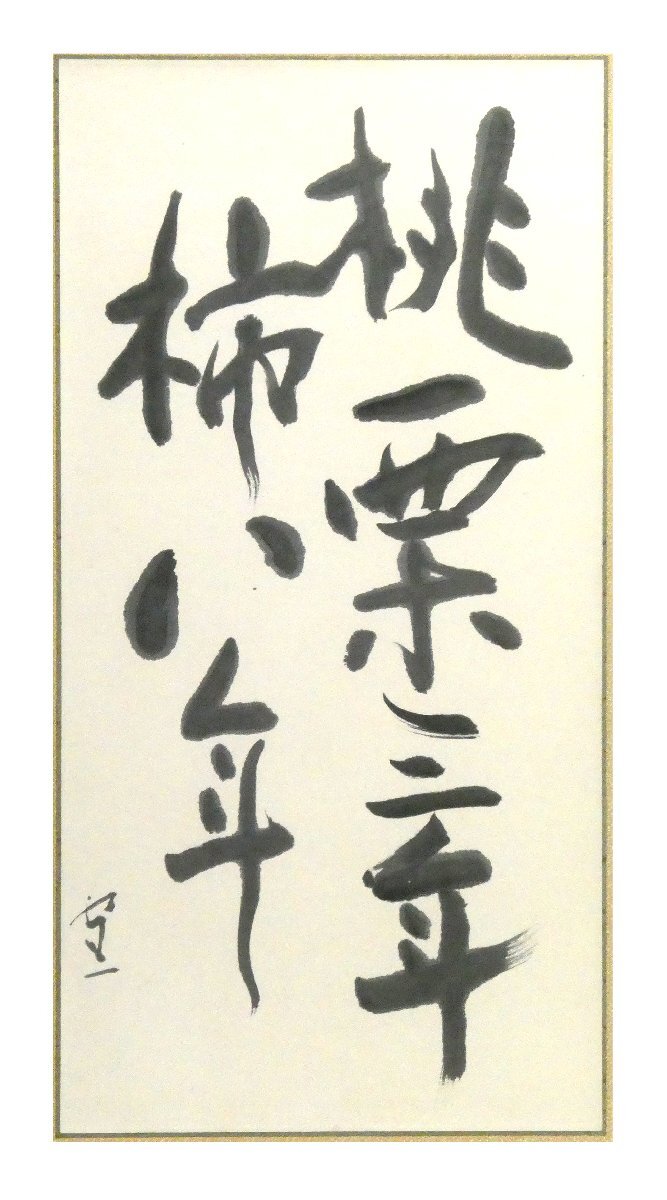 桃栗三年
柿八年